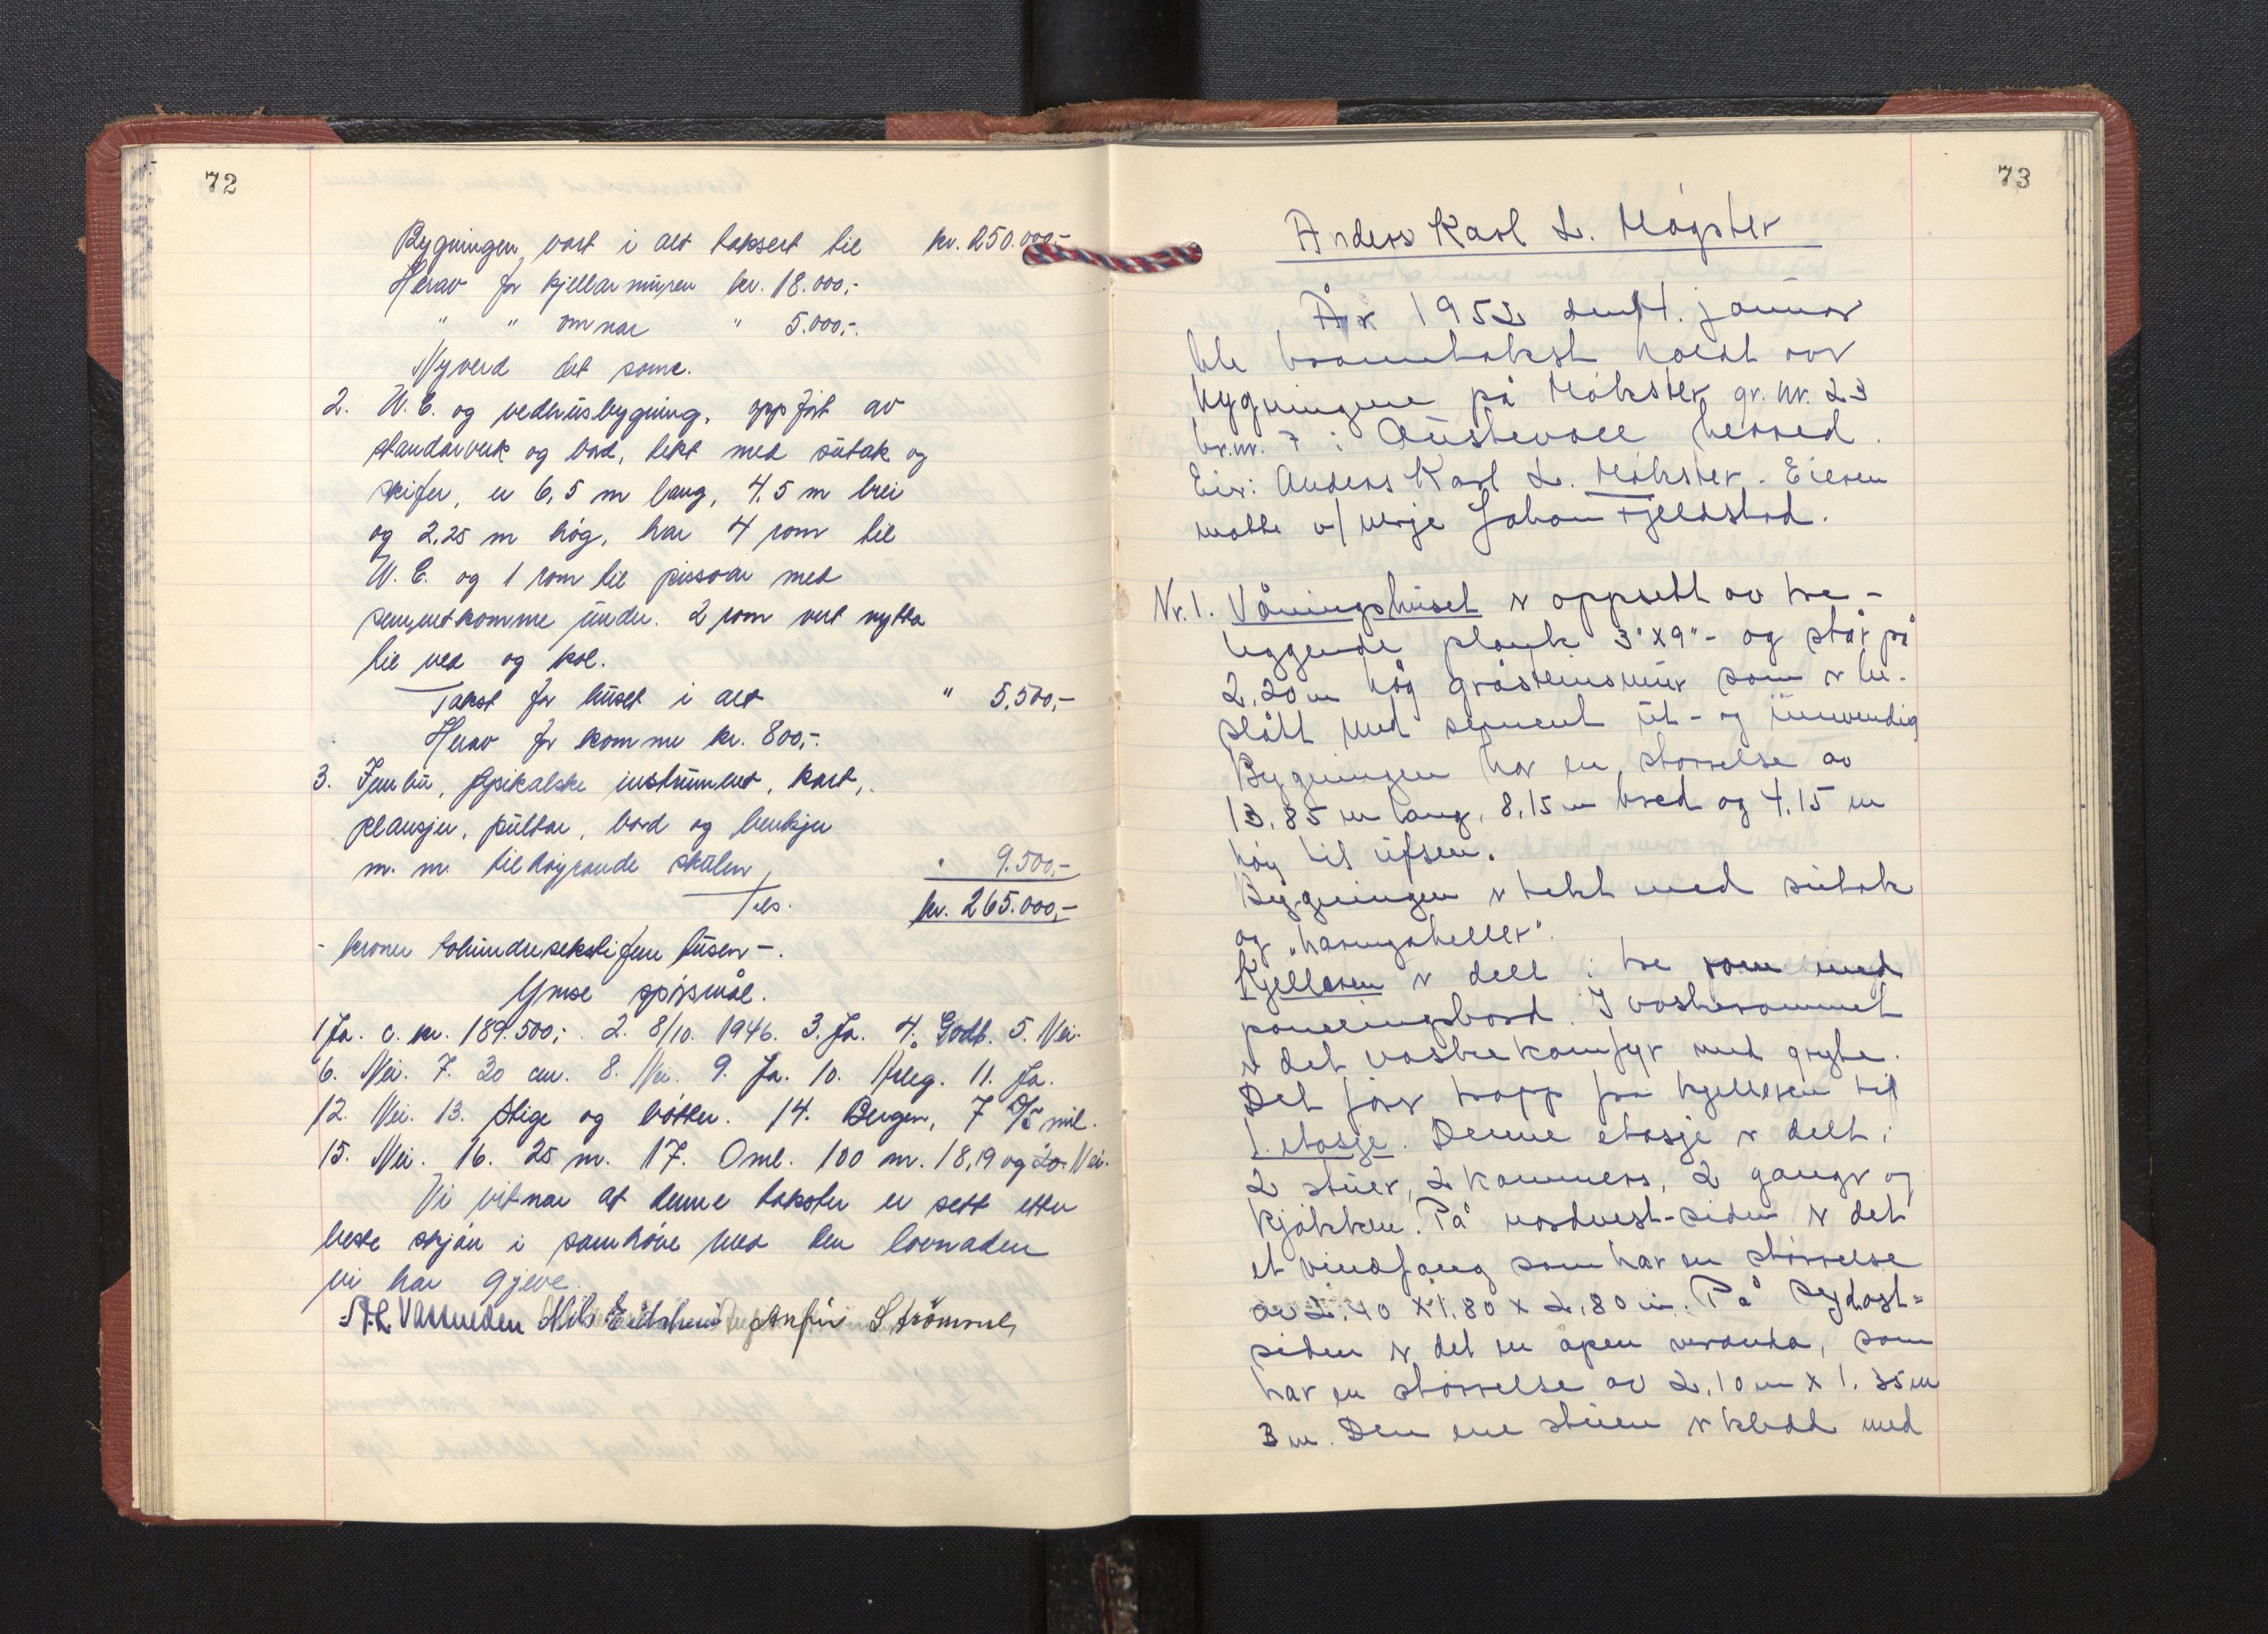 72
Bygningen vart i alt taksert til kr. 250.000,-
Herav for kjellarmuren kr. 18.000,-
" " omnar " 5.000,-
Nyverd det same.
2. W.C. og vedhusbygning, oppført av
standarverk og bord, tekt med sutak og
skifer, er 6,5 m lang, 4,5 m brei
og 2,25 m høg, har 4 rom til
W.C. og 1 rom til pissoar med
sementkomme under. 2 rom vert nytta
til ved og kol.
Takst for huset i alt " 5.500,-
Herav for komme kr. 800,-
3. Innbu, fysikalske instrument, kart,
plansjer, pultar, bord og benkjer
m. m. tilhøyrande skulen " 9.500,-
Tils. kr. 265.000,-
- kroner tohundresekstifem tusen -.
Ymse spørsmål.
1 Ja. c. kr. 189.500,-. 2. 8/10. 1946. 3. Ja. 4. Godt. 5. Nei.
6. Nei. 7. 20 cm. 8. Nei. 9. Ja. 10. Årleg. 11. Ja.
12. Nei. 13. Stige og bøtter. 14. Bergen, 7 mil.
15. Nei. 16. 25 m. 17. Oml. 100 m. 18, 19 og 20. Nei.
Vi vitnar at denne taksten er sett etter
beste skjøn i samhøve med den lovnaden
vi har gjeve.
Nils Anfin Strömmen
73
Anders Karl L. Møgster
År 1952 den 4. januar
ble branntakst holdt over
bygningene på Møkster gr. nr. 23
br.nr. 7 i Austevoll herred.
Eier: Anders Karl L. Møkster. Eieren
møtte v/ verje Johan Fjeldstad.
Nr. 1. Våningshuset er oppsett av tre -
liggende plank 3"x9" - og står på
2,20 m høg gråsteinsmur som er be-
slått med sement ut- og innvendig
Bygningen har en størrelse av
13,85 m lang, 8,15 m bred og 4,15 m
høg til ufsen.
Bygningen er tekt med sutak
og "haringsheller".
Kjelleren er delt i tre rom med
paneelingsbord. I vaskerommet
er det vaskekomfyr med gryte.
Det går trapp fra kjelleren til
1. etasje. Denne etasje er delt i
2 stuer, 2 kammers, 2 ganger og
kjøkken. På nordvest-siden er det
et vindfang som har en størrelse
av 2.40 x 1.80 x 2.80 m. På sydøst=
siden er det en åpen veranda, som
har en størrelse av 2.10 m x 1.35 m
3 m. Den ene stuen er kledd med